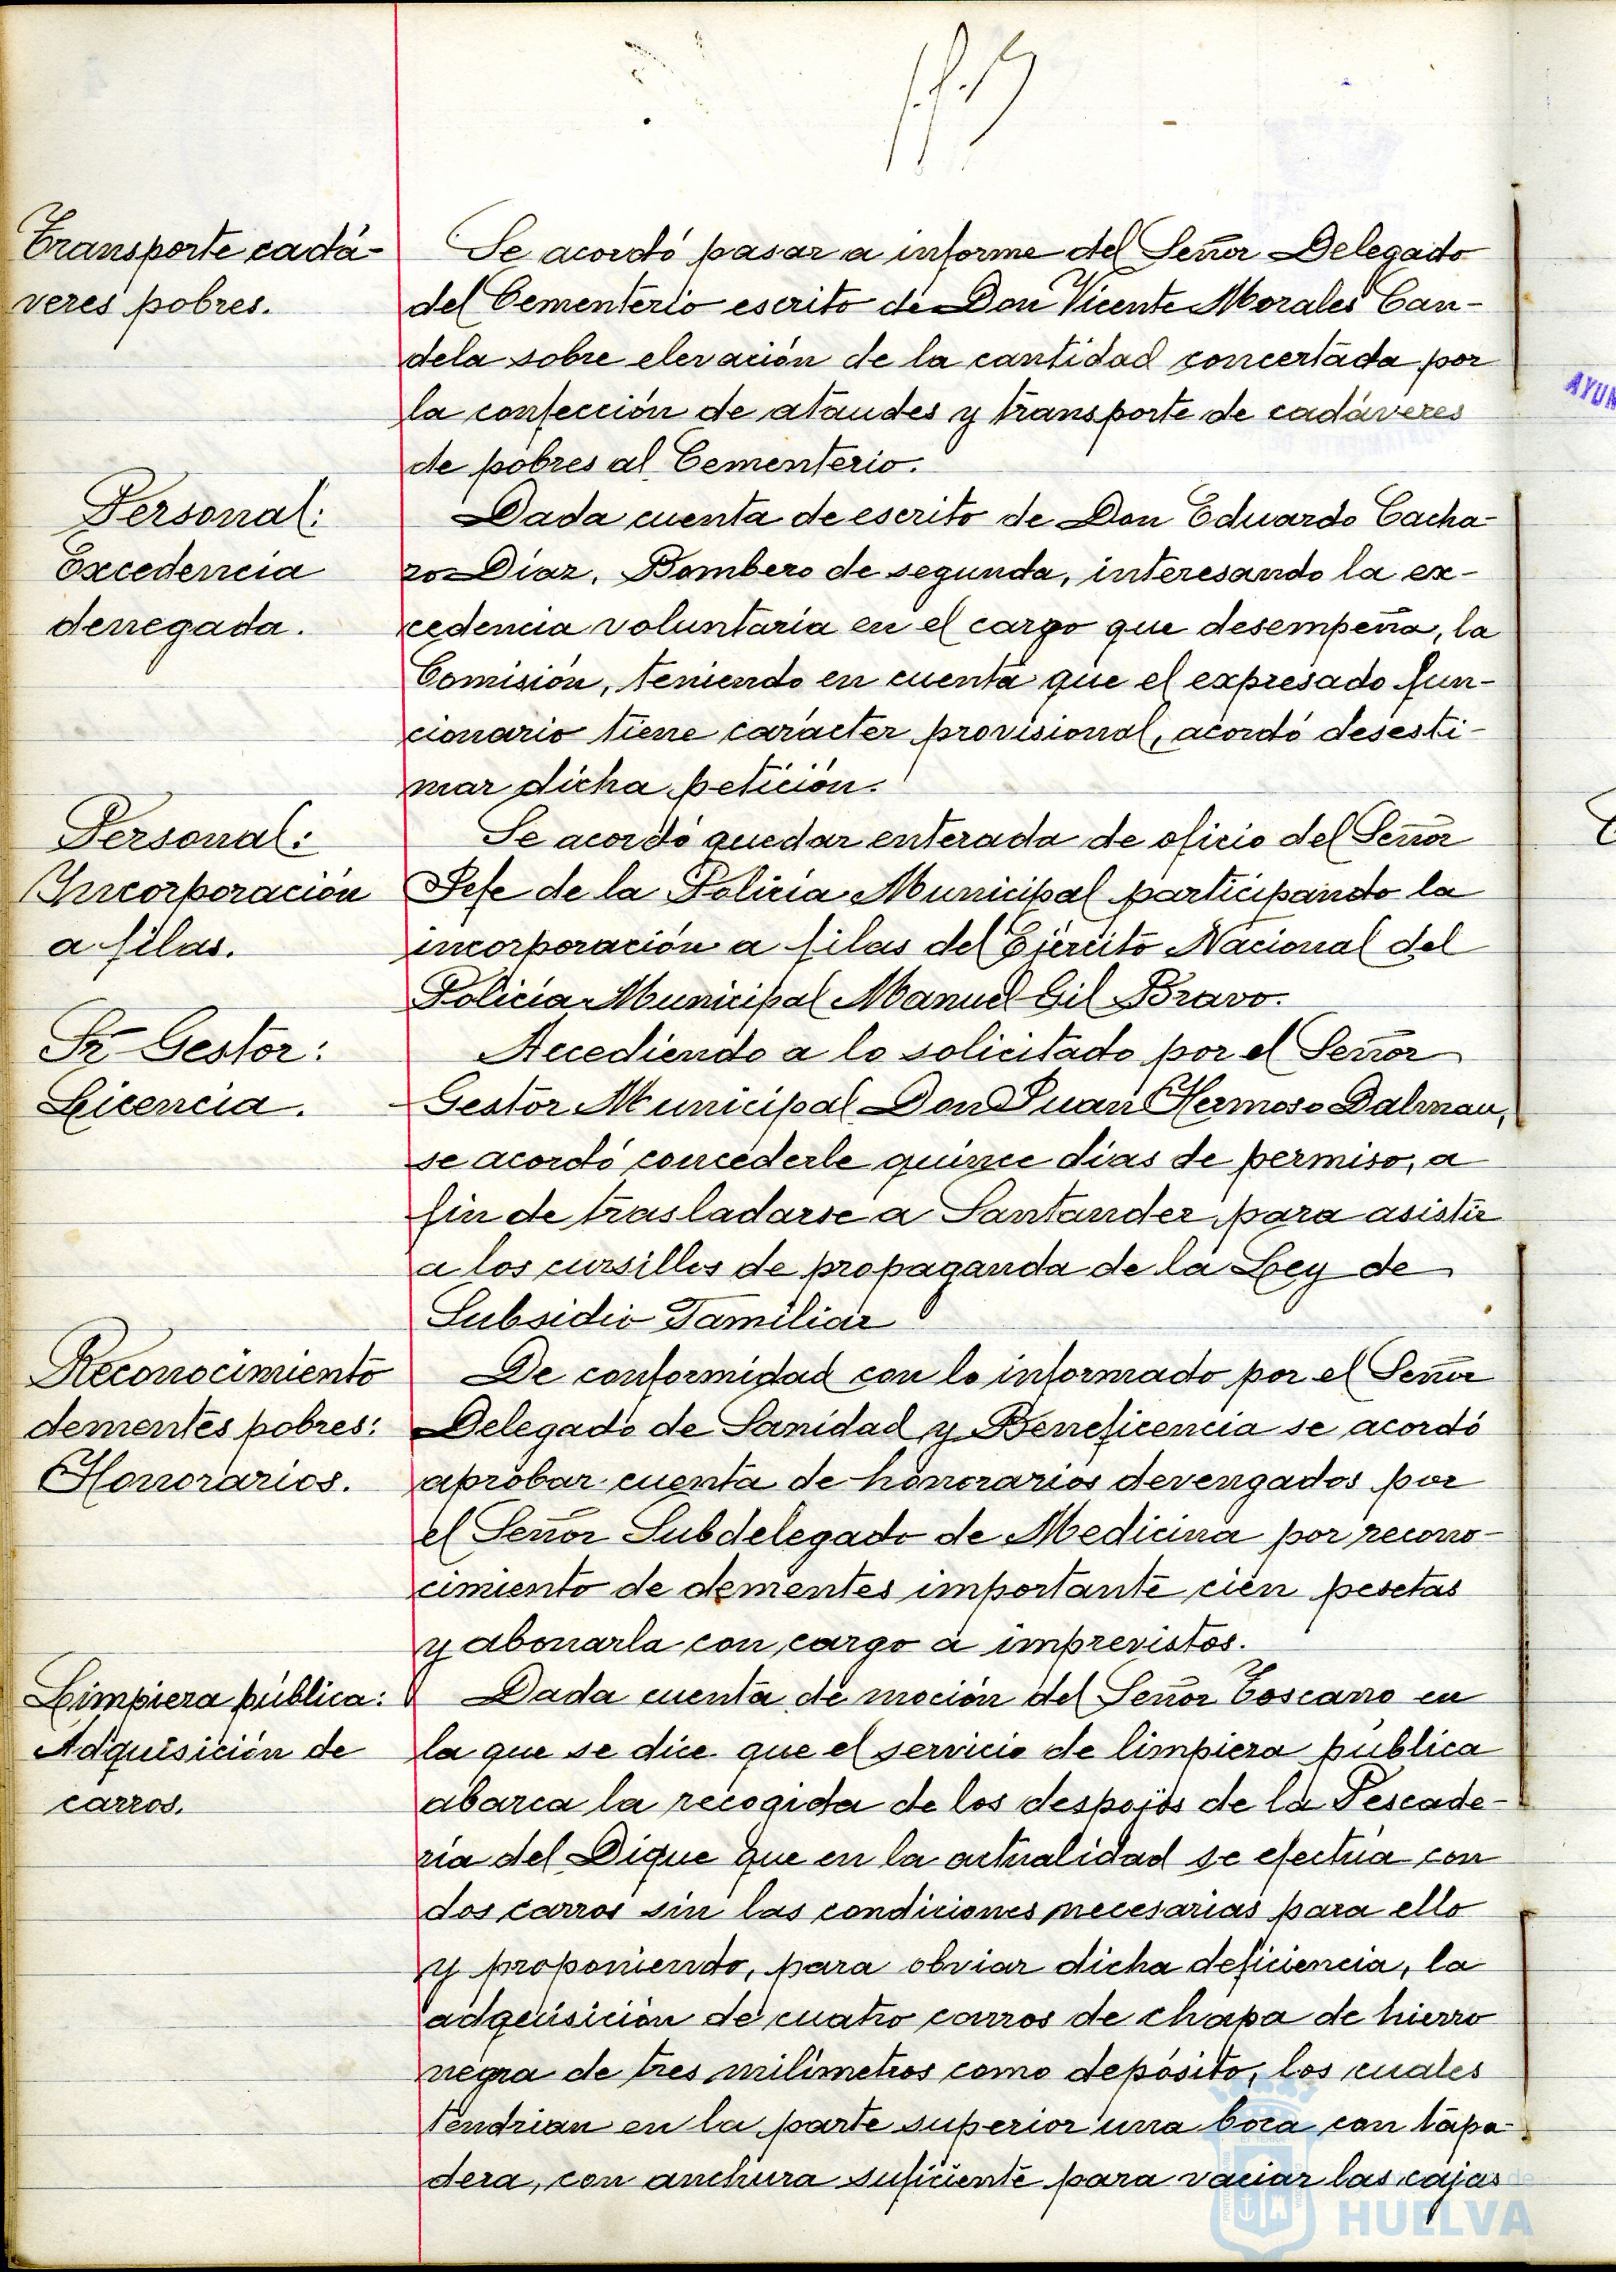 Transporte cadá-
veres pobres.
Se acordó pasar a informe del Señor Delegado
del Cementerio escrito de Don Vicente Morales Can-
dela sobre elevación de la cantidad concertada por
la confección de ataudes y transporte de cadáveres
de pobres al Cementerio.
Personal:
Excedencia
denegada.
Dada cuenta de escrito de Don Eduardo Cacha-
ro Díaz, Bombero de segunda, interesando la ex-
cedencia voluntaria en el cargo que desempeña, la
Comisión, teniendo en cuenta que el expresado fun-
cionario tiene carácter provisional, acordó desesti-
mar dicha petición.
Personal:
Incorporación
a filas.
Se acordó quedar enterada de oficio del Señor
Jefe de la Policía Municipal participando la
incorporación a filas del Ejército Nacional del
Policía Municipal Manuel Gil Bravo.
Sr. Gestor:
Licencia.
Accediendo a lo solicitado por el Señor
Gestor Municipal Don Juan Hermoso Dalmau,
se acordó concederle quince días de permiso, a
fin de trasladarse a Santander para asistir
a los cursillos de propaganda de la Ley de
Subsidio Familiar
Reconocimiento
dementes pobres:
Honorarios.
De conformidad con lo informado por el Señor
Delegado de Sanidad y Beneficencia se acordó
aprobar cuenta de honorarios devengados por
el Señor Subdelegado de Medicina por recono-
cimiento de dementes importante cien pesetas
y abonarla con cargo a imprevistos.
Limpieza pública:
Adquisición de
carros.
Dada cuenta de moción del Señor Toscano en
la que se dice que el servicio de limpieza pública
abarca la recogida de los despojos de la Pescade-
ría del Dique que en la actualidad se efectúa con
dos carros sin las condiciones necesarias para ello
y proponiendo, para obviar dicha deficiencia, la
adquisición de cuatro carros de chapa de hierro
negra de tres milímetros como depósito, los cuales
tendrian en la parte superior una boca con tapa-
dera, con anchura suficiente para vaciar las cajas
HUELVA
AYUN